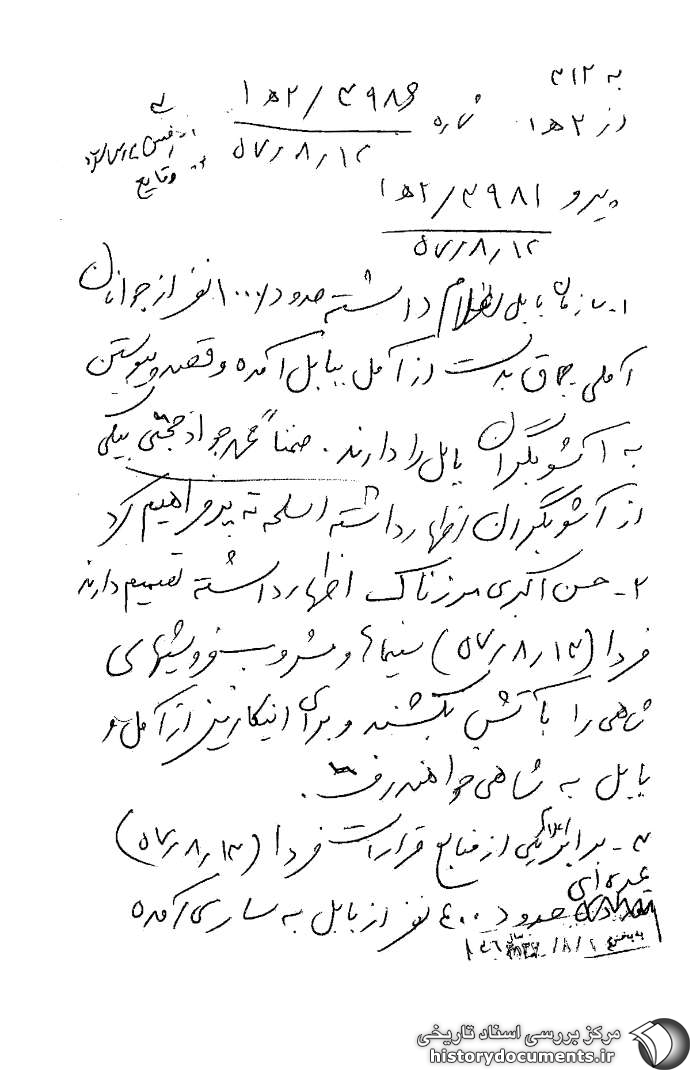 به ۳۱۲
از ۲ه‍ ۱ شماره ۳۹۸۶ / ۲ه‍ ۱
۵۷٫۸٫۱۲
۲- وقایع
پیرو ۳۹۸۱ / ۲ه‍ ۱
۵۷٫۸٫۱۲
۱- سازمان بابل اعلام داشته حدود ۱۰۰۰ نفر از جوانان
آملی چماق بدست از آمل ببابل آمده و قصد پیوستن
به آشوبگران بابل را دارند . ضمناً محمد جواد حجتی بیگی
از آشوبگران اظهار داشته اسلحه تهیه خواهیم کرد
۲- حسن اکبری مرزناک اظهار داشته تصمیم دارند
فردا (۵۷٫۸٫۱۳) سینماها و مشروب فروشیهای
شاهی را بآتش بکشند و برای اینکار نیز از آمل و
بابل به شاهی خواهند رفت .
۳- برابر اعلام یکی از منابع قرار است فردا (۵۷٫۸٫۱۳)
عده‌ای
حدود ۴۰۰ نفر از بابل به ساری آمده
مرکز بررسی اسناد تاریخی
historydocuments.ir